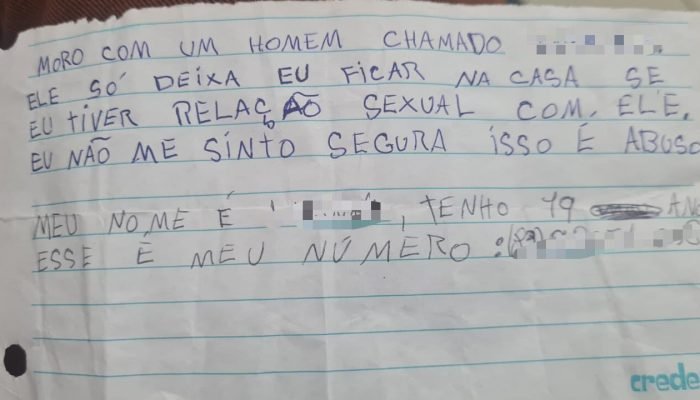 MORO COM UM HOMEM CHAMADO
ELE SÓ DEIXA EU FICAR NA CASA SE
EU TIVER RELAÇÃO SEXUAL COM. ELE.
EU NÃO ME SINTO SEGURA ISSO É ABUSO
MEU NOME É , TENHO 19 AN
ESSE É MEU NÚMERO :
crede